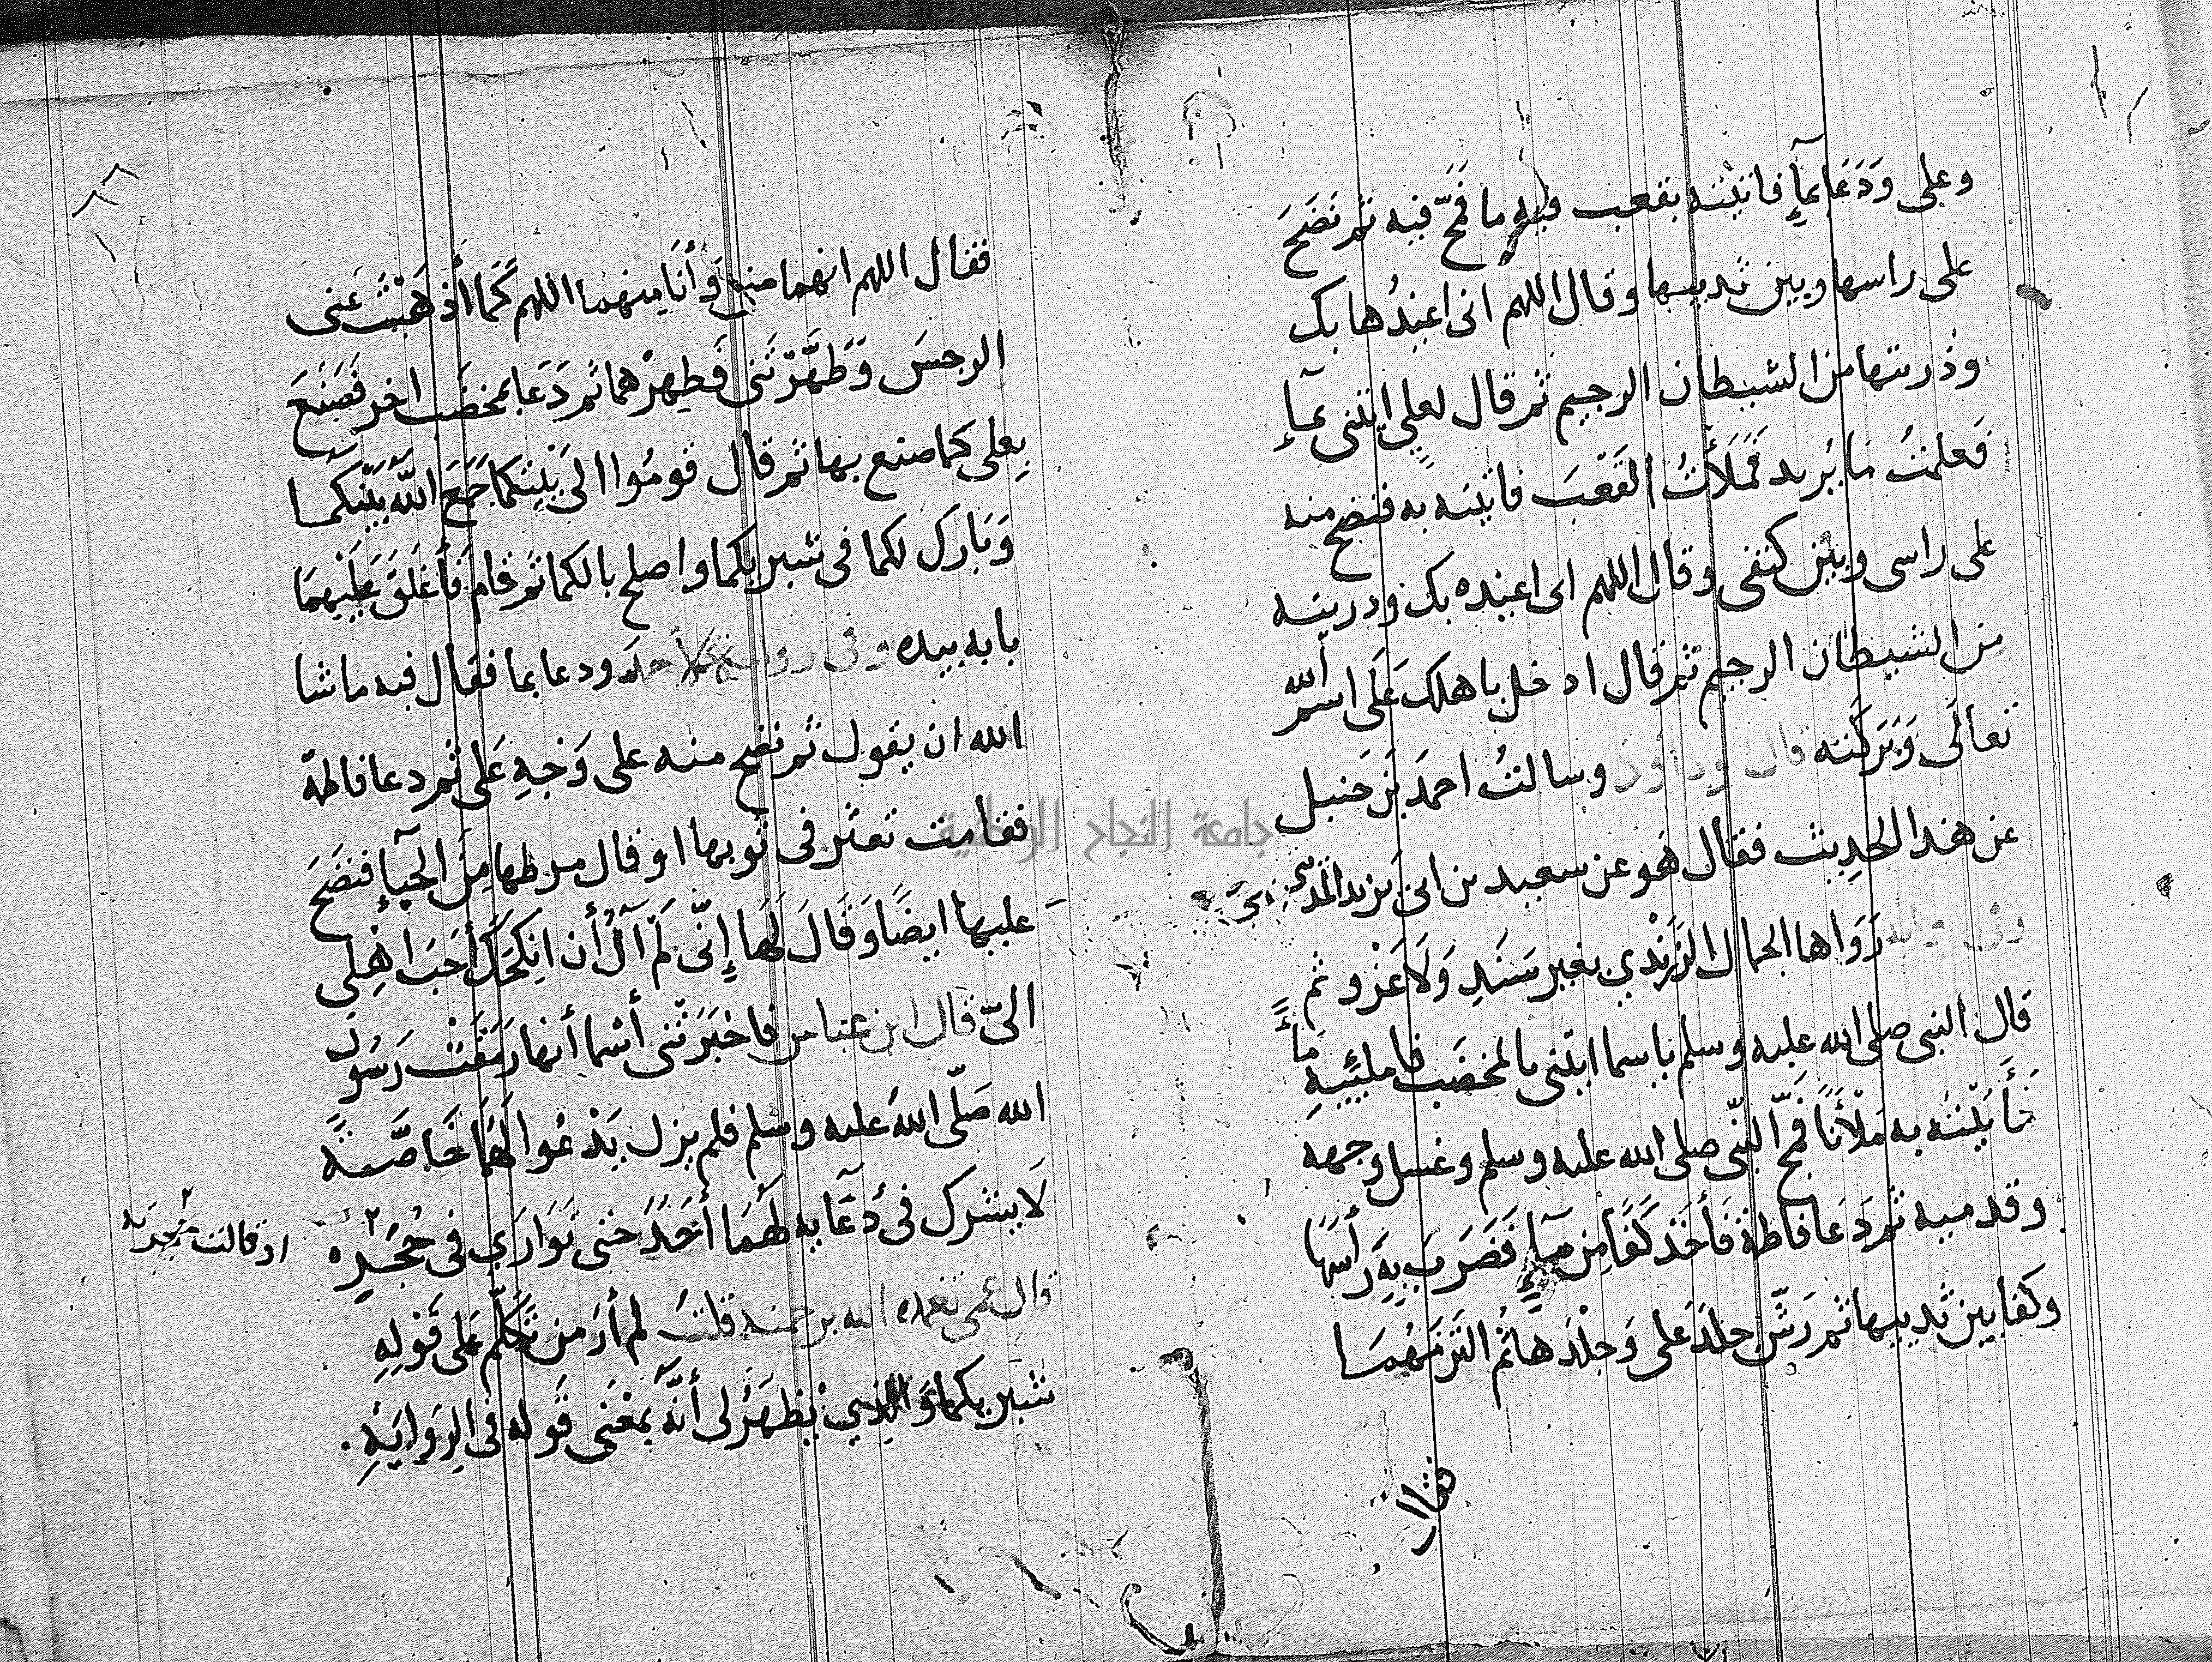 وعلى وَدَعَا بمآءٍ فاتيته بقعب فيه ما فَمَجّ فيه ثم نَضَحَ
على راسها وبين ثدييها وقال اللهم انى اعيذُها بك
وذريتها من الشيطان الرجيم ثم قال لعلي إيتنى بمآءٍ
فَعلمتُ مَا يُريد فَمَلَأتُ القَعْبَ فاتيته به فنضح منه
على راسى وبين كتفى وقال اللهم انى اعيذه بك وذريته
من الشيطان الرجيم ثم قال ادخل باهلك عَلَى اسم الله
تعالى وَبَرَكَته قال ودَاوُد وسالتُ احمدَ بْنَ حَنبل
عن هذا الحدِيث فقال هُو عن سعيد بن ابى يَزيد المدَنى
وفى رواية رَوَاها الجمال الزَرَنْدي بغير سَنَدٍ وَلَا عَزْو ثم
قال النبى صلى الله عليه وسلم يا سما ايتنى بالمخضَب فامليَّيهِ مَآءً
فَأَتَيْتُه به مَلْأنًا فَمَجَّ النَّبى صلى الله عليه وسلم وغسل وجهه
وقدميه ثم دَعَا فاطمة فَأخَذ كَفًا مِن مَآءٍ فَضَرَبَ بِهِ رَأسَهَا
وكفا بين ثدييها ثم رَشّ جلدَ على وَجِلْدَهَا ثُم الْتَزمَهُمَا
فقال
فقال اللهم انهما منى وَأنَا مِنهما اللهم كَمَا أَذهَبْتَ عَنى
الرجسَ وَطَهَّرْتَنى فَطِهِرْهما ثم دَعَا بمخضَب اخر فَصَنَعَ
بِعلى كما صنع بها ثم قال قومُوا الى بَيْتِكما جَمَعَ اللّه بَيْنَكُما
وَبَارَك لكما فى شبريكما واصلح بالكما ثم قام فَأغلَقَ عَلَيْهِمَا
بابه بيده وفى رواية لأحمد ودعا بما فقال فيه ما شا
الله ان يقول ثم نضح منه على وَجْهِ عَلى ثم دعا فاطمة
فقامت تعثر فى ثوبها او قال مرطها مِنَ الحيآءِ فنضَحَ
عليها ايضًا وَقَالَ لَهَا إِنّى لَمْ آلُ أن انكِحَكِ أحَبَ اهْلى
الىّ قال ابن عباس فاخبَرَتْنى أسْما أنها رَمَقَتْ رَسُول
الله صَلّى اللهُ عليه وسلم فلم يزل يَدْعُوا لَهُمَا خَاصَّةً
لَا يشرك فى دُعَآيه لَهُمَا أحَدًَ حَتى تَوَارَى فى حُجُرِهِ ٢
او قالت حُجرَته ٢
قال عمى تغمده الله برحمته قلتُ لم أرَ من تَكَلّم عَلى قَولِهِ
شبريكما وَالذِي يَظهَرُ لى أنَّهَ بمعْنَى قَوله فى الرِوَايَةِ .
جامعة النجاح الوطنية